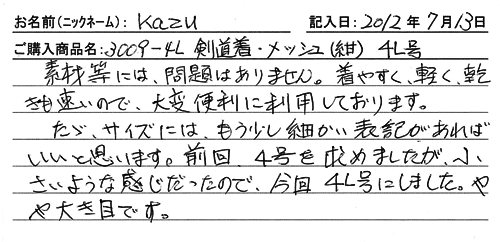 お名前(ニックネーム): Kazu 記入日: 2012年7月13日
ご購入商品名: 3009-4L 剣道着・メッシュ(紺) 4L号
素材等には、問題はありません。着やすく、軽く、乾
きも速いので、大変便利に利用しております。
ただ、サイズには、もう少し細かい表記があれば
いいと思います。前回、4号を求めましたが、小
さいような感じだったので、今回 4L号にしました。や
や大き目です。